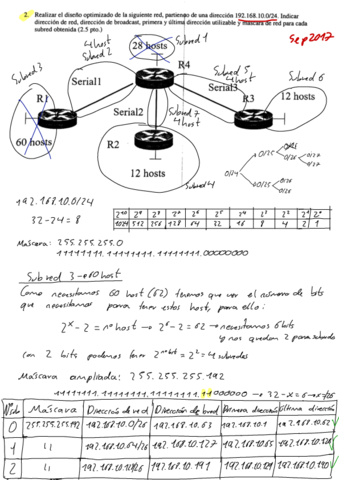 2. Realizar el diseño optimizado de la siguiente red, partiendo de una dirección 192.168.10.0/24. Indicar
dirección de red, dirección de broadcast, primera y última dirección utilizable y máscara de red para cada
subred obtenida (2.5 pto.)
Sep2017
4 host
Subred 2
28 hosts
Subred 1
R4
Subred 3
Serial1
Subred 5
4 host
Subred 6
R1
Serial3
R3
12 hosts
60 hosts
Serial2
Subred 7
4 host
R2
12 hosts
Subred 4
0/24
0/25
0/25
0/26
0/26
0/26
0/27
0/27
192.168.10.0/24
32-24=8
2^10 2^9 2^8 2^7 2^6 2^5 2^4 2^3 2^2 2^1 2^0
1024 512 256 128 64 32 16 8 4 2 1
Máscara: 255.255.255.0
11111111.11111111.11111111.00000000
Subred 3 → 60 host
Como necesitamos 60 host (62) tenemos que ver el número de bits
que necesitamos para tener estos host, para ello:
2^x - 2 = nº host → 2^6 - 2 = 62 → necesitamos 6 bits
y nos quedan 2 para subred
con 2 bits podemos tener 2^nº bit = 2^2 = 4 subredes
Máscara ampliada: 255.255.255.192
11111111.11111111.11111111.11000000 → 32-x=6 → /26
Máscara Dirección de red Dirección de broad Primera dirección Última dirección
0 255.255.255.192 192.168.10.0/26 192.168.10.63 192.168.10.1 192.168.10.62
1 11 192.168.10.64/26 192.168.10.127 192.168.10.65 192.168.10.126
2 11 192.168.10.128/26 192.168.10.191 192.168.10.129 192.168.10.190